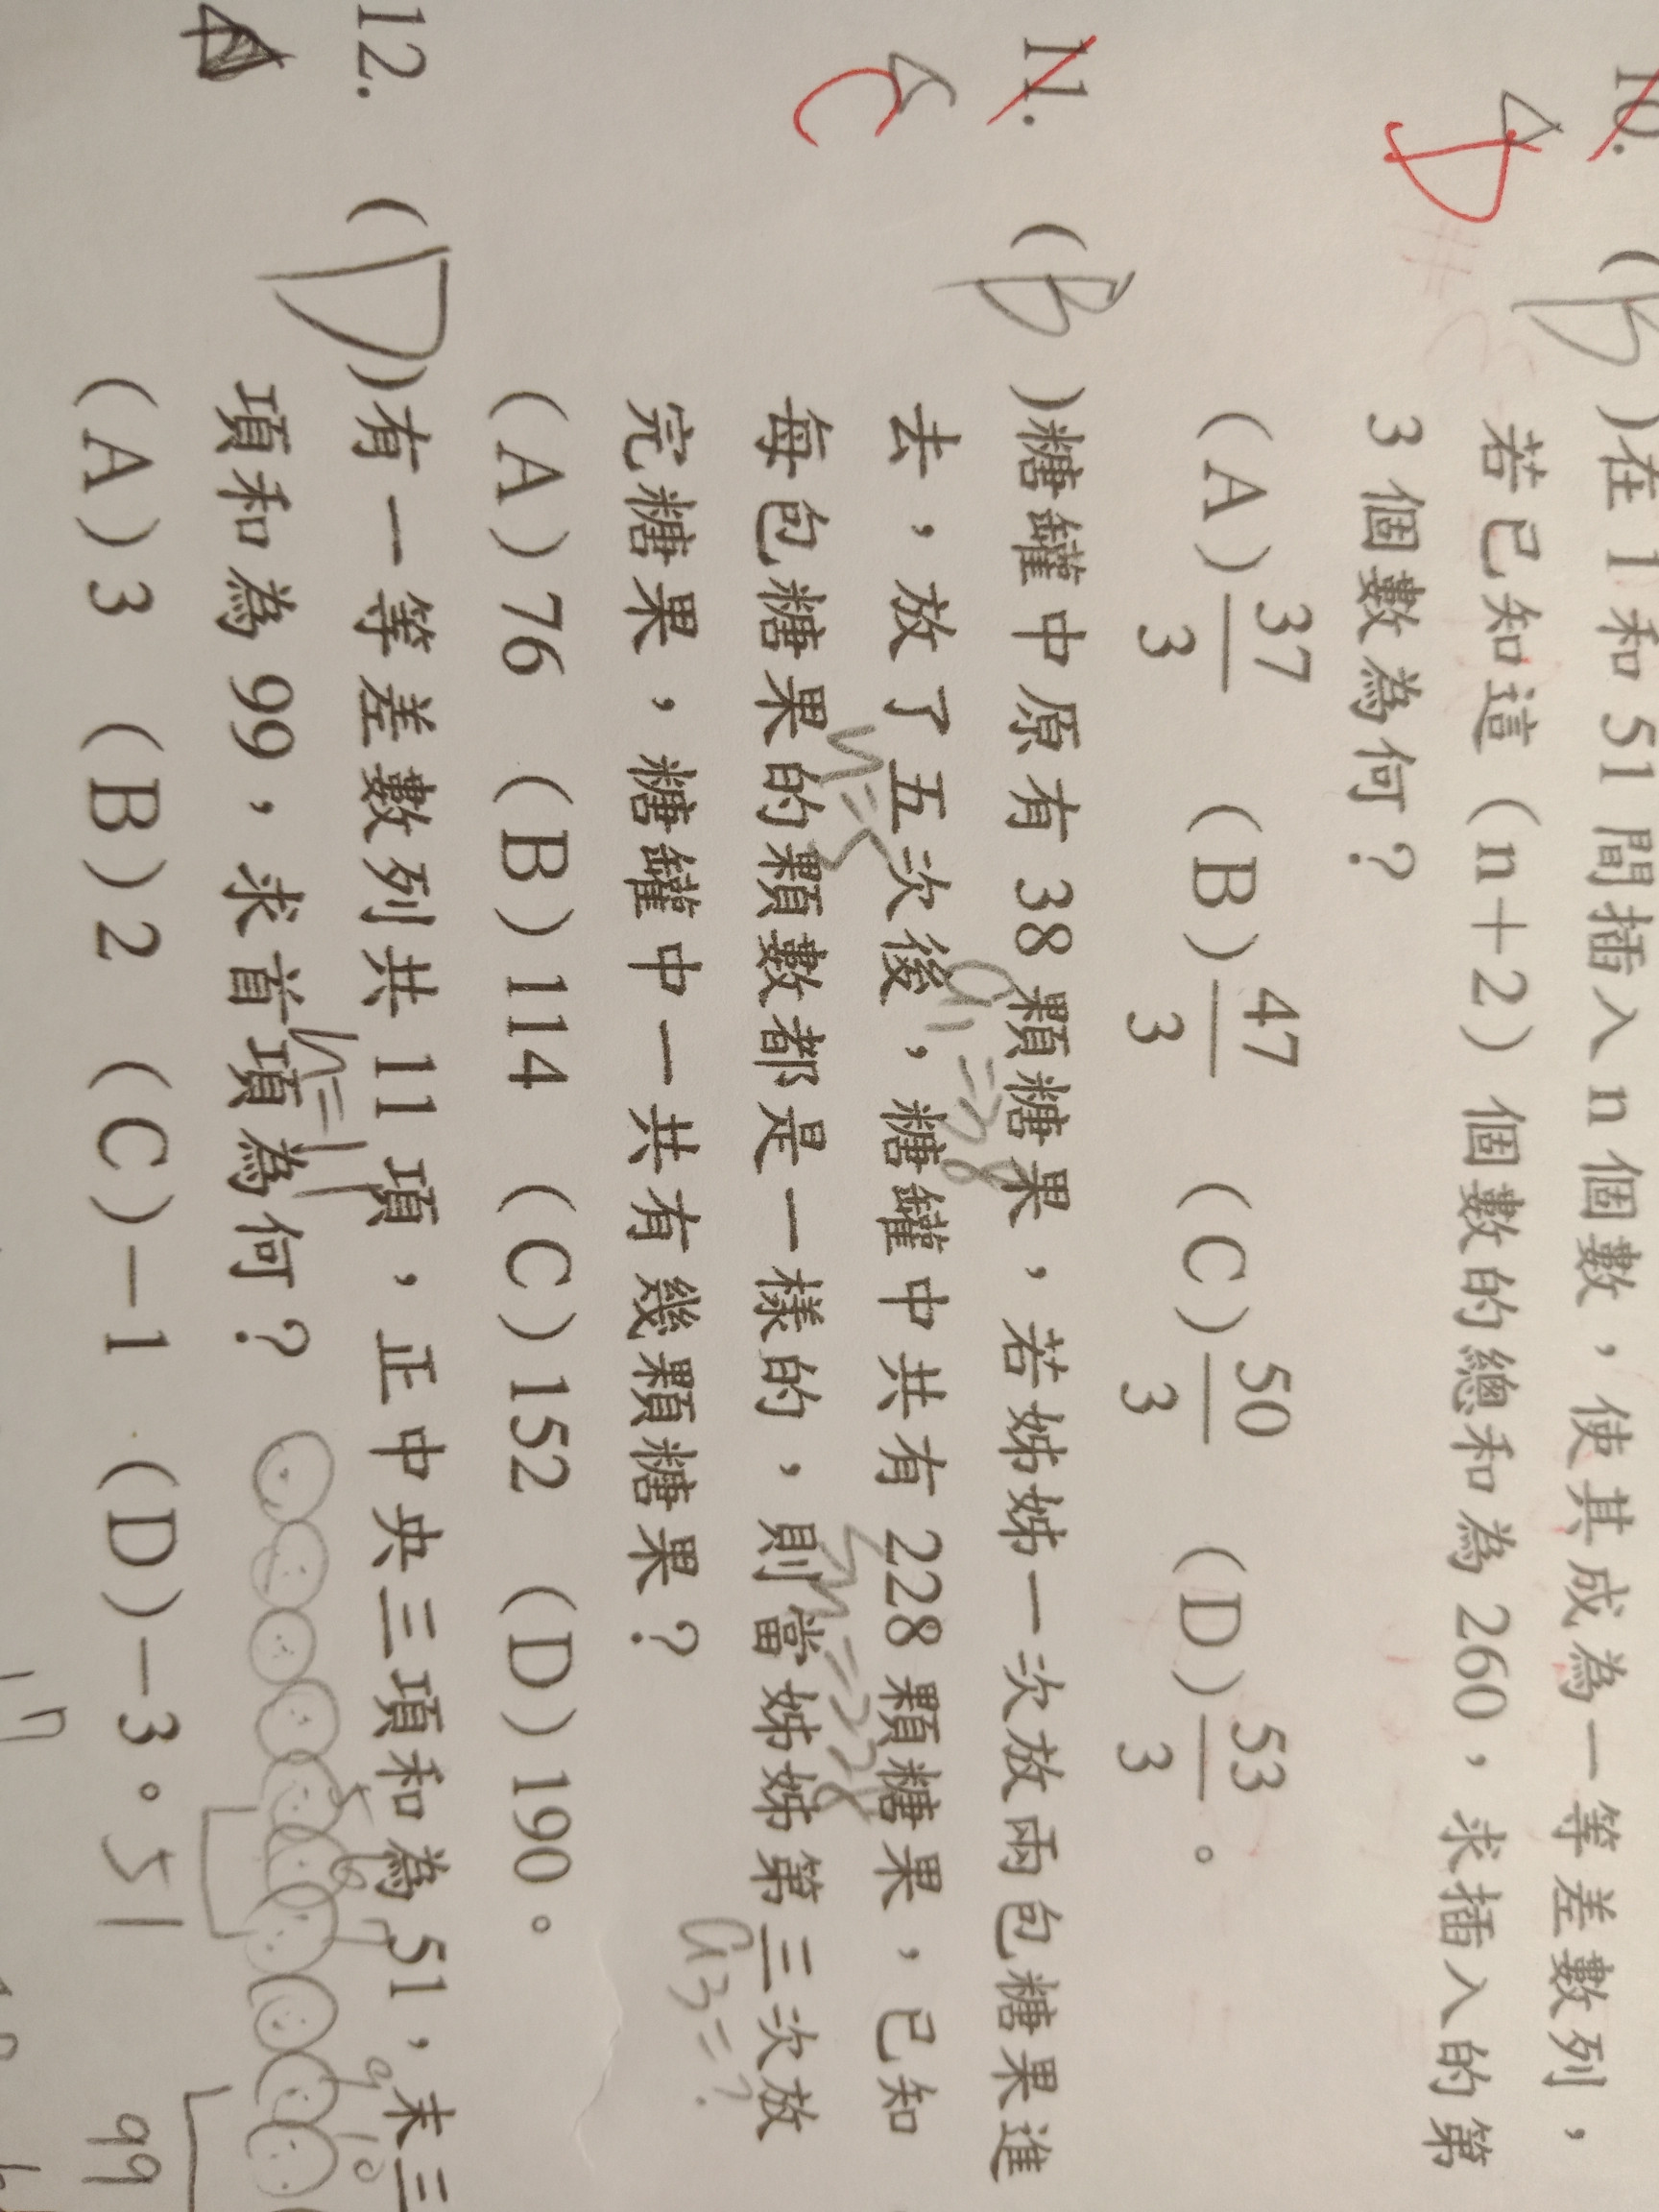 10. (B)在 1 和 51 間插入 n 個數，使其成為一等差數列，
D
若已知這（n＋2）個數的總和為 260，求插入的第
3 個數為何？
(A) 37/3 (B) 47/3 (C) 50/3 (D) 53/3 。
11. (B)糖罐中原有 38 顆糖果，若姊姊一次放兩包糖果進
C
a1=38
去，放了五次後，糖罐中共有 228 顆糖果，已知
n=5
每包糖果的顆數都是一樣的，則當姊姊第三次放
a3=?
完糖果，糖罐中一共有幾顆糖果？
(A)76 (B)114 (C)152 (D)190。
12. (D)有一等差數列共 11 項，正中央三項和為 51，末三
n=11
5 6 7 9 10
項和為 99，求首項為何？
(A)3 (B)2 (C)－1 (D)－3。
51 99
17